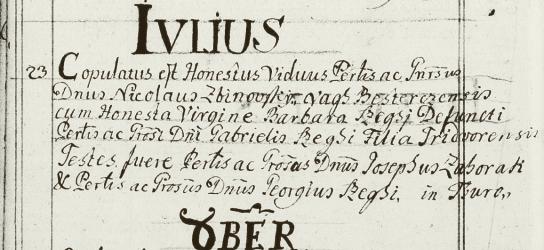 IVLIUS
23 Copulatus est Honestus Viduus Pertis ac
Dnus Nicolaus Vagh Besterczensis
cum Honesta Virgine Barbara Beghi Defuncti
Pertis ac Grosi Dni Gabrielis Beghi Filia
Testes fuere Pertis ac Grosus Dnus Josephus Zahorak
& Pertis ac Grosus Dnus Georgius Beghi, in
8BER